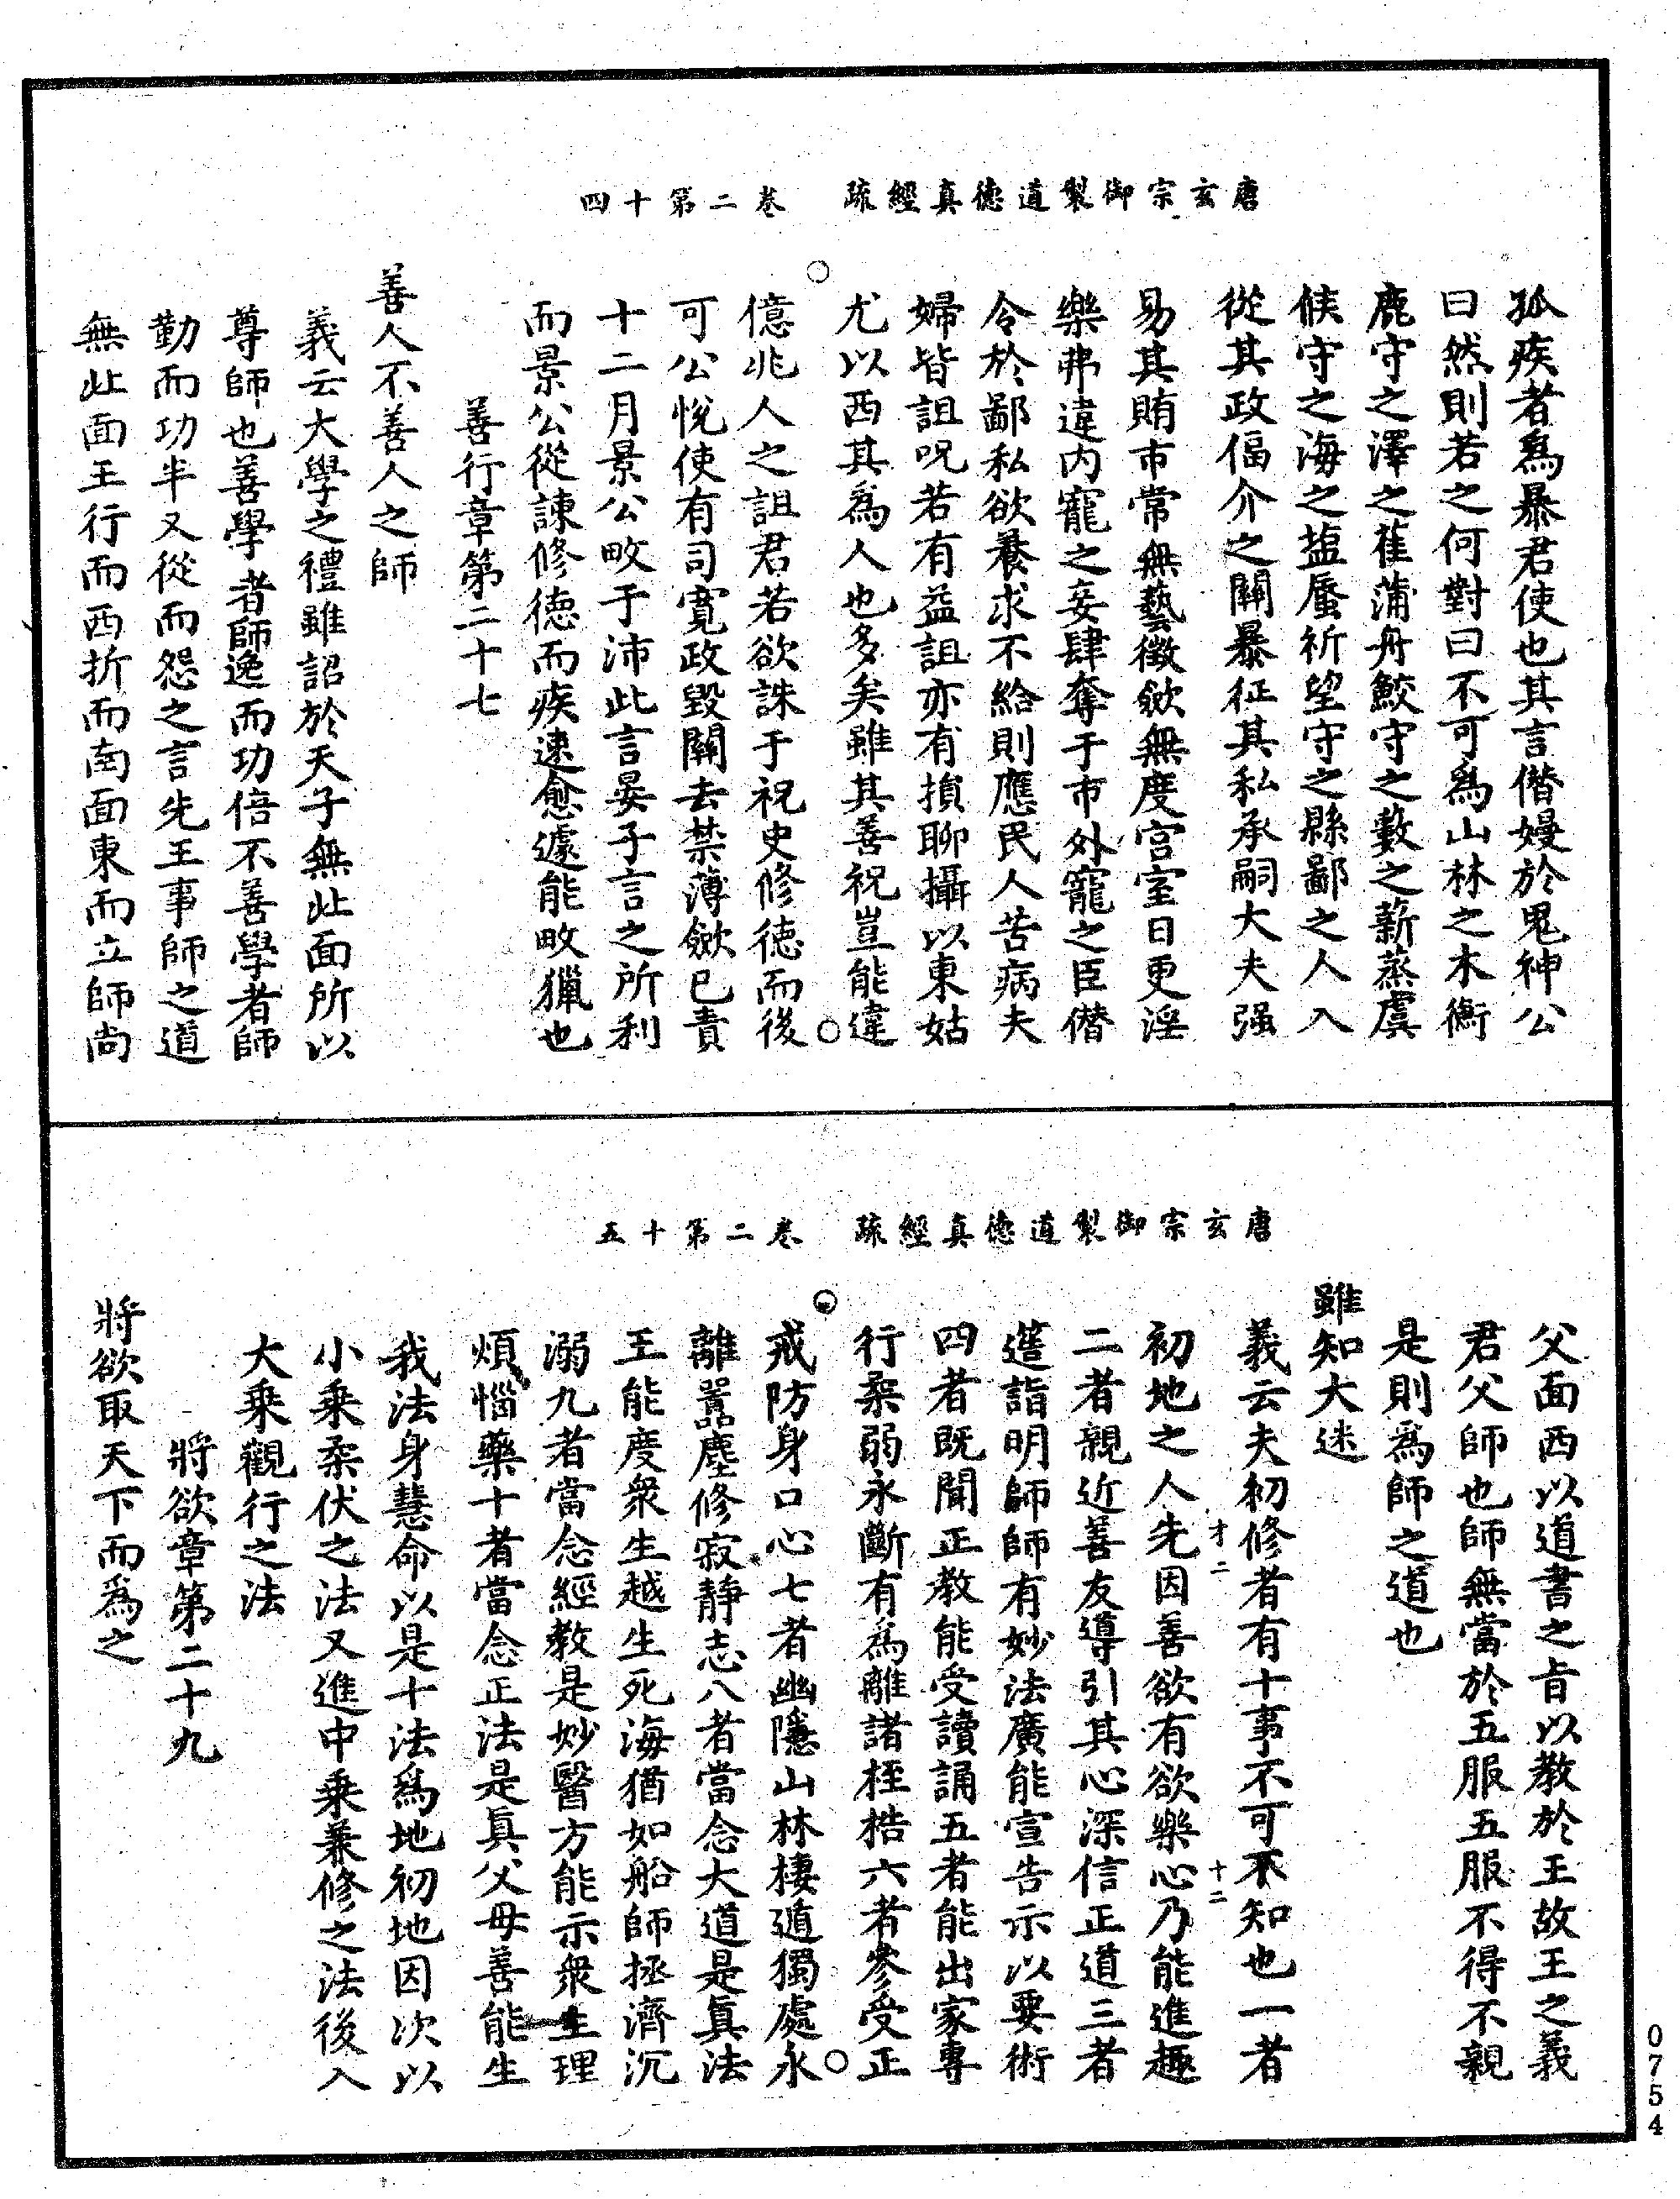 唐玄宗御製道德真經疏　卷二第十四
孤疾者爲暴君使也其言僭嫚於鬼神公
曰然則若之何對曰不可爲山林之木衡
鹿守之澤之萑蒲舟鮫守之藪之薪蒸虞
候守之海之塩蜃祈望守之縣鄙之人入
從其政偪介之關暴征其私承嗣大夫强
易其賄市常無藝徵斂無度宫室日更淫
樂弗違内寵之妾肆奪于市外寵之臣僭
令於鄙私欲養求不給則應民人苦病夫
婦皆詛呪若有益詛亦有損聊攝以東姑
尤以西其爲人也多矣雖其善祝豈能違
億兆人之詛君若欲誅于祝史修德而後
可公悅使有司寬政毀關去禁薄斂已責
十二月景公畋于沛此言晏子言之所利
而景公從諫修德而疾速愈遽能畋獵也
善行章第二十七
善人不善人之師
義云大學之禮雖詔於天子無北面所以
尊師也善學者師逸而功倍不善學者師
勤而功半又從而怨之言先王事師之道
無北面王行而西折而南面東而立師尚
唐玄宗御製道德真經疏　卷二第十五
父面西以道書之旨以教於王故王之義
君父師也師無當於五服五服不得不親
是則爲師之道也
雖知大迷
義云夫初修者有十事不可不知也一者
才二　十二
初地之人先因善欲有欲樂心乃能進趣
二者親近善友導引其心深信正道三者
造詣明師師有妙法廣能宣告示以要術
四者既聞正教能受讀誦五者能出家專
行柔弱永斷有爲離諸桎梏六者參受正
戒防身口心七者幽隱山林棲遁獨處永
離囂塵修寂靜志八者當念大道是眞法
王能度衆生越生死海猶如船師拯濟沉
溺九者當念經教是妙醫方能示衆生理
煩惱藥十者當念正法是眞父母善能生
我法身慧命以是十法爲地初地因次以
小乘柔伏之法又進中乘兼修之法後入
大乘觀行之法
將欲章第二十九
將欲取天下而爲之
0754